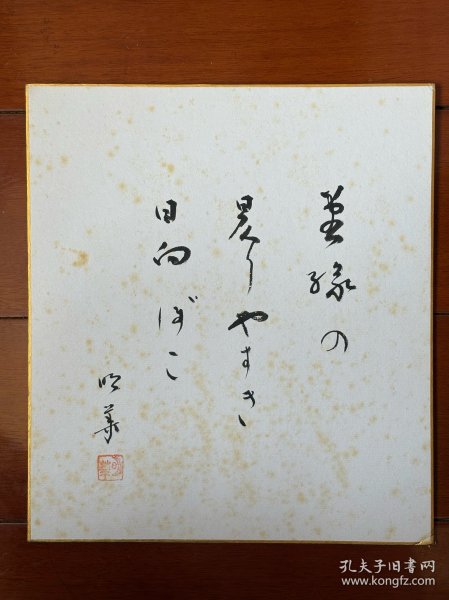 堂縁の
昃りやすき
日向ぼこ
明華
孔夫子旧书网
www.kongfz.com